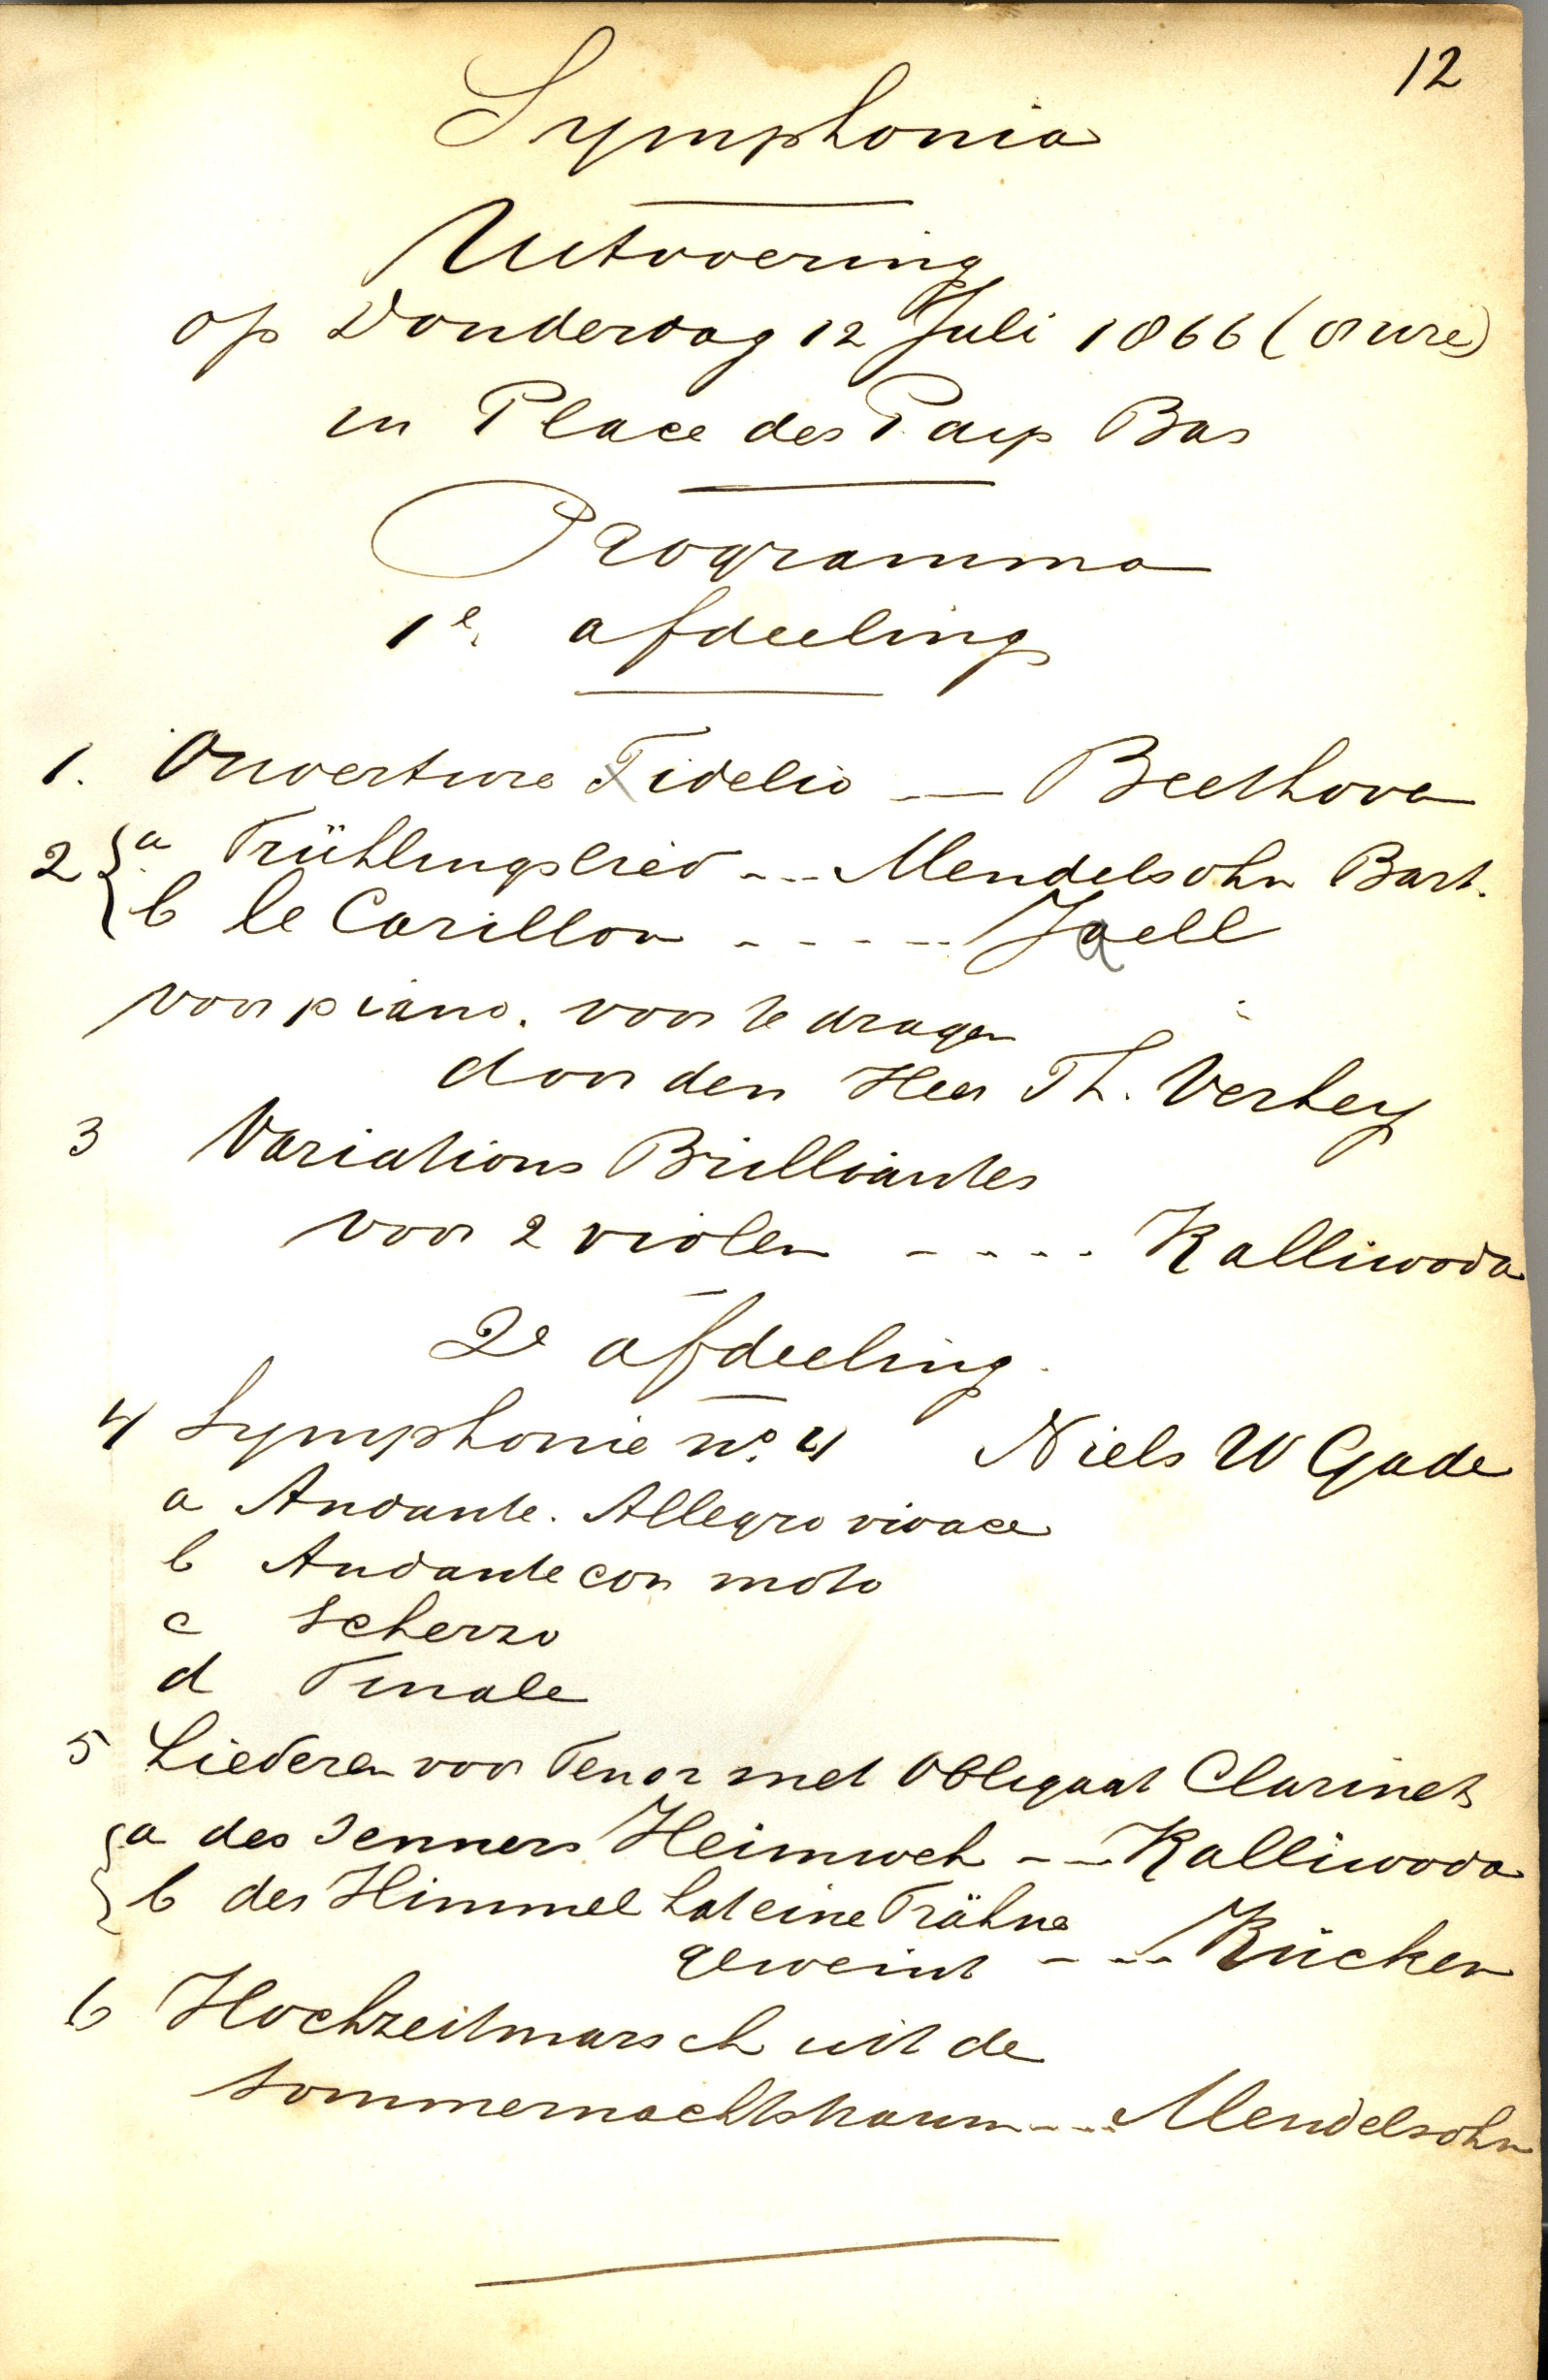 12
Symphonia
Uitvoering
op Donderdag 12 Juli 1866 (8 ure)
in Place des Pays Bas
Programma
1e. afdeeling
1. Ouverture Fidelio — Beethoven
2 { a Frühlingslied --- Mendelsohn Bart.
b le Carillon ----- Jaell
voor piano. voor te dragen
door den Heer Th. Verhey
3 Variations Brilliantes
voor 2 violen ---- Kalliwoda
2e afdeeling.
4 Symphonie no. 4 Niels W Gade
a Andante. Allegro vivace
b Andante con moto
c Scherzo
d Finale
5 Liederen voor Tenor met Obligaat Clarinet
{ a des Senners Heimweh -- Kalliwoda
b der Himmel hat eine Trähne
geweint --- Kücken
6 Hochzeitmarsch uit de
Sommernachtstraum --- Mendelsohn